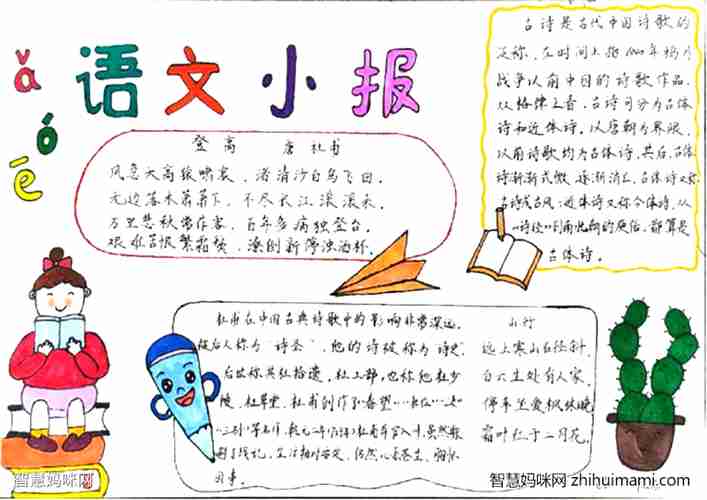 ǎ
ó
ē
语文小报
登高 唐 杜甫
风急天高猿啸哀,渚清沙白鸟飞回。
无边落木萧萧下,不尽长江滚滚来。
万里悲秋常作客,百年多病独登台。
艰难苦恨繁霜鬓,潦倒新停浊酒杯。
古诗是古代中国诗歌的
泛称,在时间上指1840年鸦片
战争以前中国的诗歌作品,
从格律上看,古诗可分为古体
诗和近体诗。以唐朝为界限,
以前诗歌均为古体诗,其后,古体
诗渐渐式微 逐渐消亡。古体诗又称
古诗或古风;近体诗又称今体诗。从
《诗经》到南北朝的庾信,都算是
古体诗。
杜甫在中国古典诗歌中的影响非常深远,
被后人称为“诗圣”,他的诗被称为“诗史”。
后世称其杜拾遗、杜工部,也称他杜少
陵、杜草堂。杜甫创作了《春望》
虽然
山行
远上寒山石径斜,
白云生处有人家。
停车坐爱枫林晚,
霜叶红于二月花。
智慧妈咪网
智慧妈咪网 zhihuimami.com